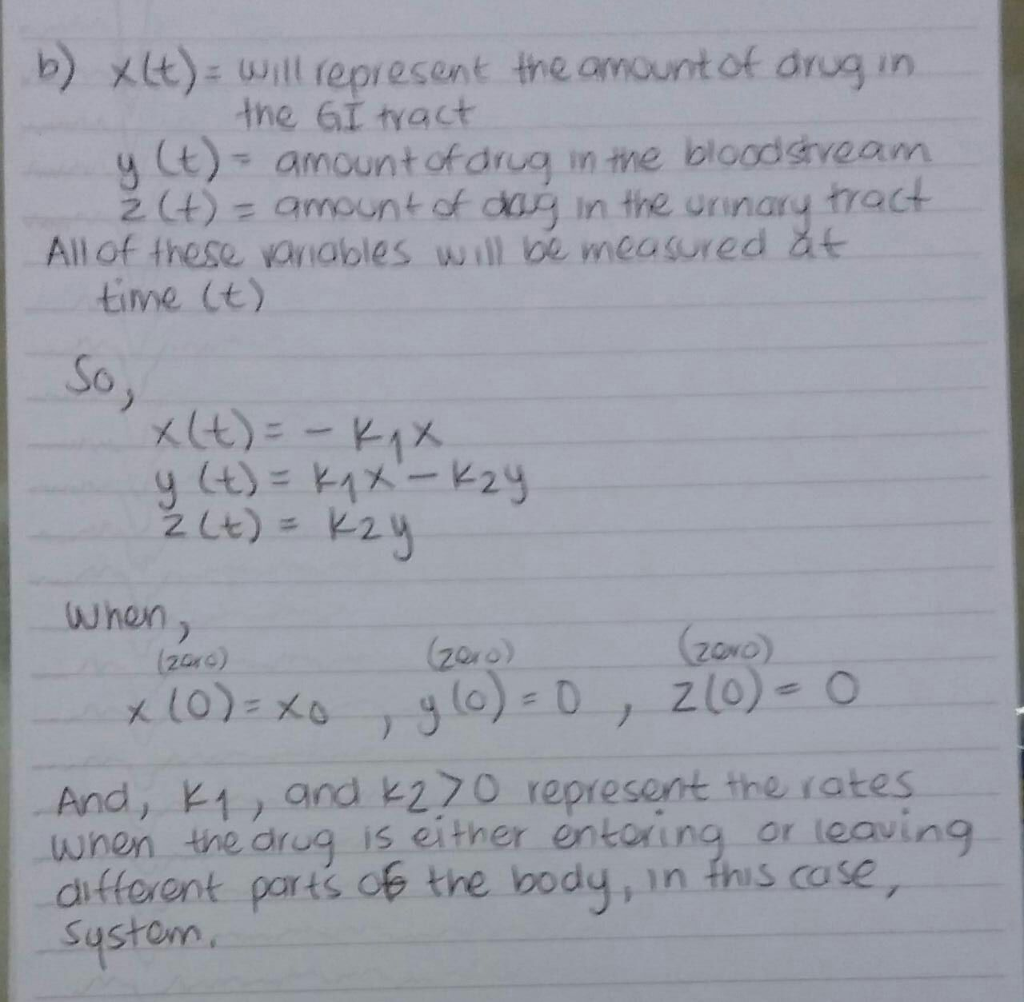 b) x(t) = will represent the amount of drug in
the GI tract
y (t) = amount of drug in the bloodstream
z (t) = amount of drug in the urinary tract
All of these variables will be measured at
time (t)
So,
x(t) = - K1x
y (t) = K1x - K2y
z (t) = K2y
When,
(zero) (zero) (zero)
x (0) = x0 , y (0) = 0 , z (0) = 0
And, K1, and K2>0 represent the rates
when the drug is either entering or leaving
different parts of the body, in this case,
system.